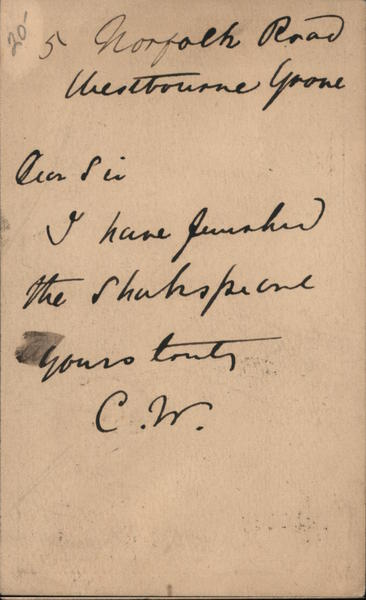 20
5 Norfolk Road
Westbourne Grove
Dear Sir
I have finished
the Shakspeare
yours truly
C.W.